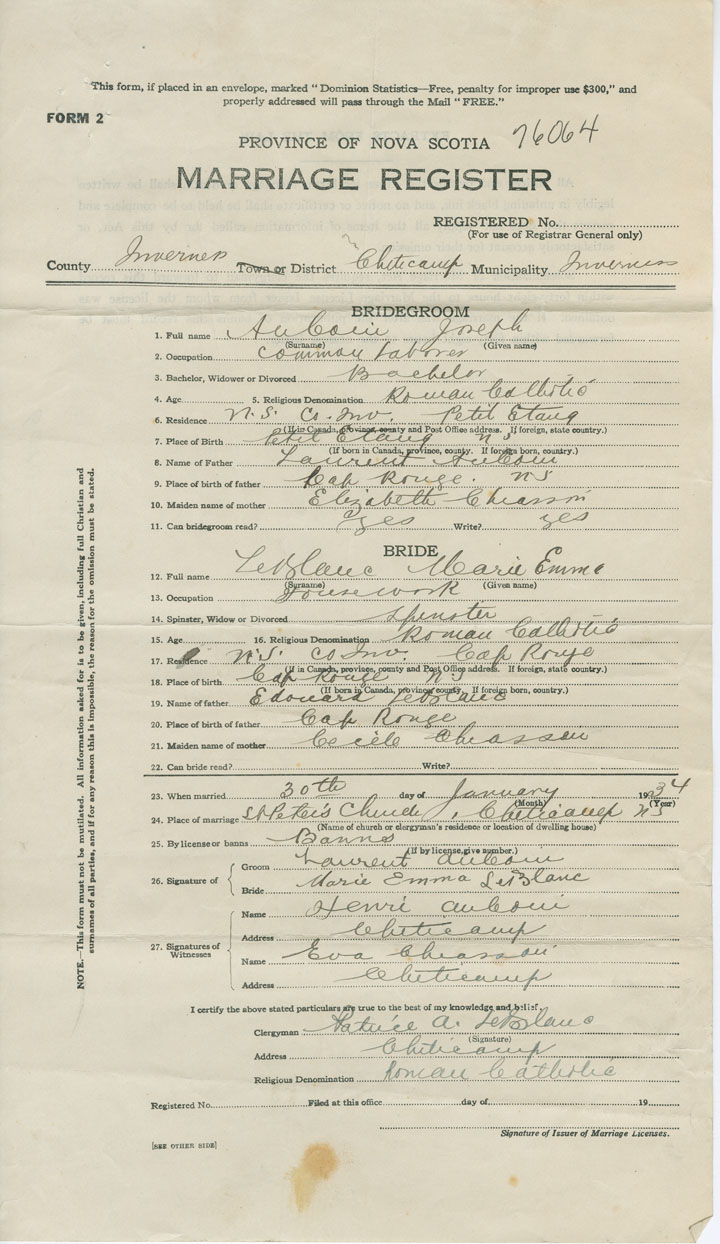 This form, if placed in an envelope, marked "Dominion Statistics—Free, penalty for improper use $300," and
properly addressed will pass through the Mail "FREE."
FORM 2
PROVINCE OF NOVA SCOTIA 76064
MARRIAGE REGISTER
REGISTERED No.
(For use of Registrar General only)
County Inverness Town or District Cheticamp Municipality Inverness
BRIDEGROOM
1. Full name AuCoin Joseph
(Surname) (Given name)
2. Occupation Common Laborer
3. Bachelor, Widower or Divorced Bachelor
4. Age 5. Religious Denomination Roman Catholic
6. Residence N.S. Co. Inv. Petit Etang
(If in Canada, province, county and Post Office address. If foreign, state country.)
7. Place of Birth Petit Etang N S
(If born in Canada, province, county. If foreign born, country.)
8. Name of Father Laurent AuCoin
9. Place of birth of father Cap Rouge. N S
10. Maiden name of mother Elizabeth Chiasson
11. Can bridegroom read? Yes Write? yes
BRIDE
12. Full name LeBlanc Marie Emma
(Surname) (Given name)
13. Occupation Housework
14. Spinster, Widow or Divorced Spinster
15. Age 16. Religious Denomination Roman Catholic
17. Residence N.S. Co Inv. Cap Rouge
(If in Canada, province, county and Post Office address. If foreign, state country.)
18. Place of birth Cap Rouge N S
(If born in Canada, province county. If foreign born, country.)
19. Name of father Edouard LeBlanc
20. Place of birth of father Cap Rouge
21. Maiden name of mother Cecile Chiasson
22. Can bride read? Write?
23. When married 30th day of January 1934
(Month) (Year)
24. Place of marriage St Peter's Church, Cheticamp N S
(Name of church or clergyman's residence or location of dwelling house)
25. By license or banns Banns
(If by license, give number.)
26. Signature of
Groom Laurent AuCoin
Bride Marie Emma LeBlanc
27. Signatures of
Witnesses
Name Henri AuCoin
Address Cheticamp
Name Eva Chiasson
Address Cheticamp
I certify the above stated particulars are true to the best of my knowledge and belief.
Clergyman Patrice A. LeBlanc
(Signature)
Address Cheticamp
Religious Denomination Roman Catholic
Registered No. Filed at this office day of 19
Signature of Issuer of Marriage Licenses.
[SEE OTHER SIDE]
NOTE.—This form must not be mutilated. All information asked for is to be given, including full Christian and
surnames of all parties, and if for any reason this is impossible, the reason for the omission must be stated.